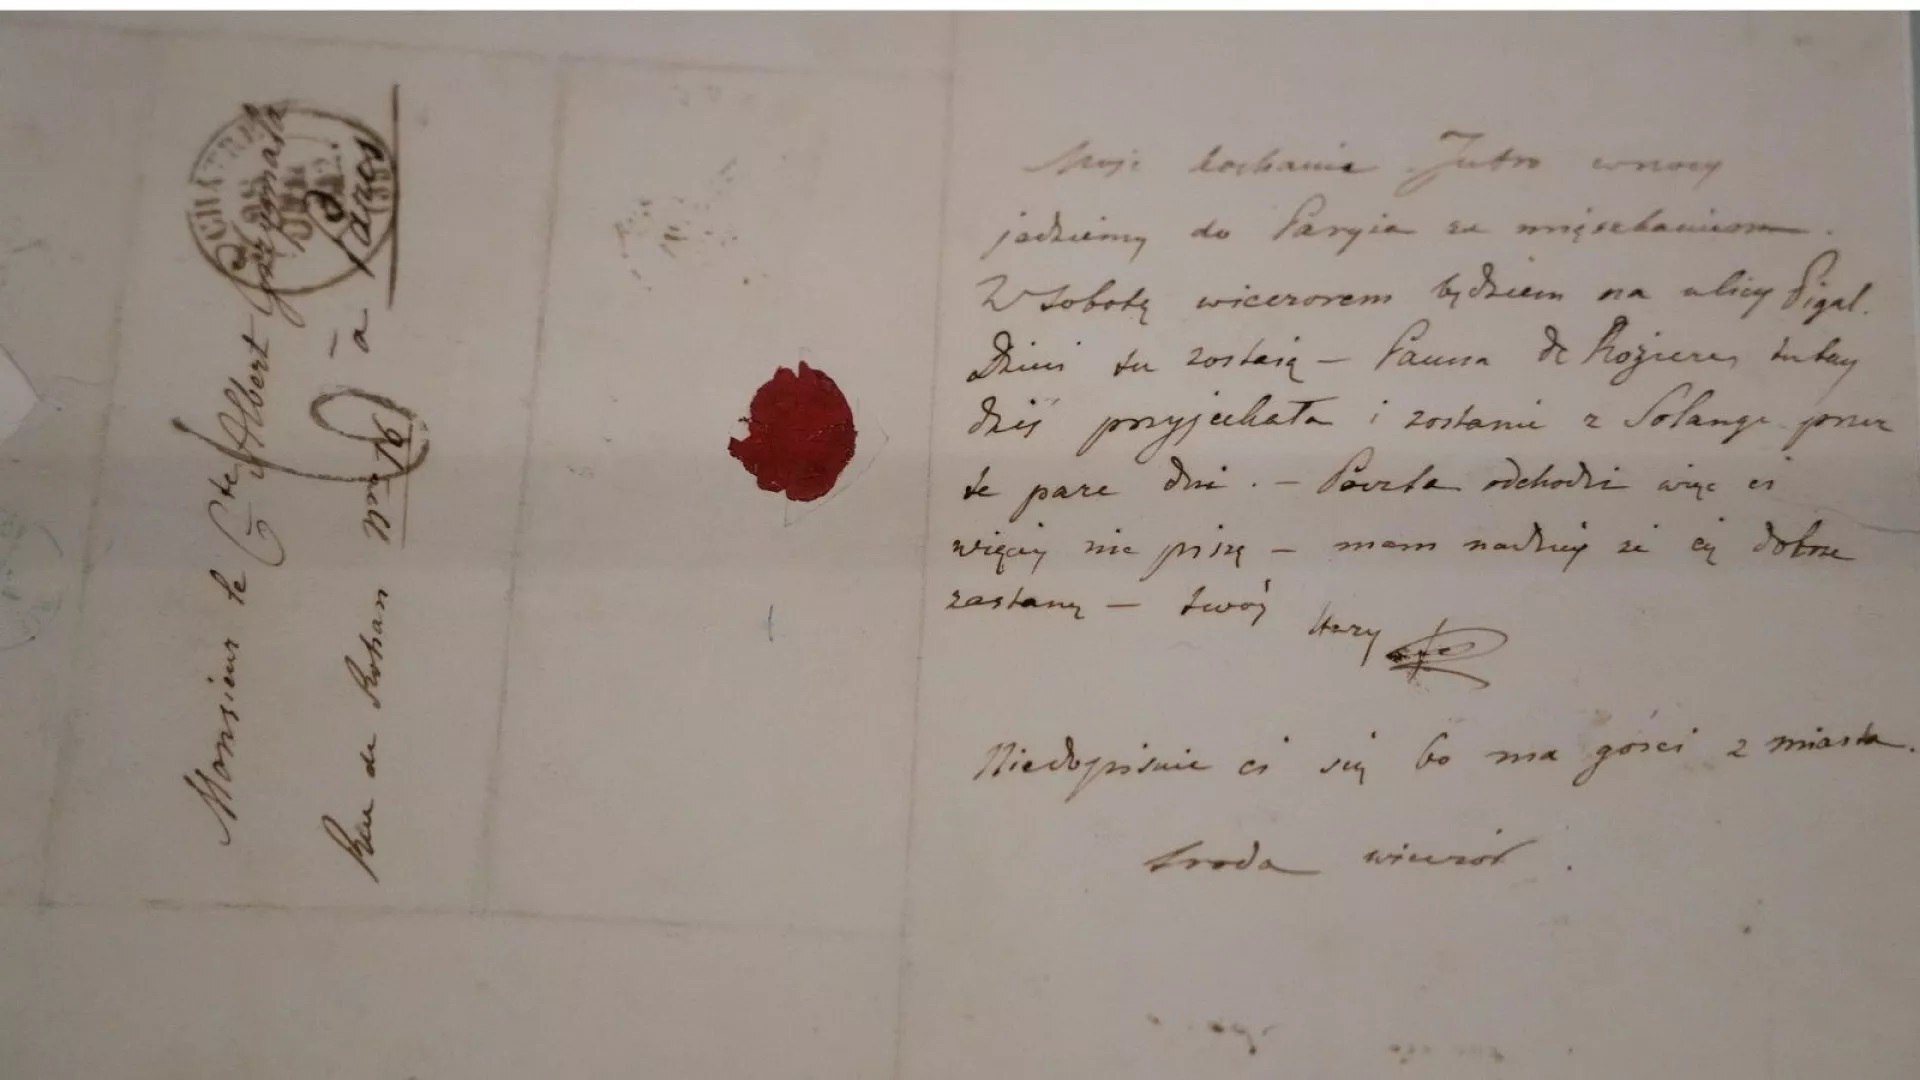 Monsieur le Cte Albert Grzymała
Rue de Rohan Nro 16
à Paris
Moje kochanie. Jutro wnocy
jedziemy do Paryża za mięszkaniem.
W sobotę wieczorem będziem na ulicy Pigal.
Dzieci tu zostają – Panna de Rozieres tutay
dziś przyjechała i zostanie z Solange przez
te parę dni. – Poczta odchodzi więc ci
więcéy nie piszę – mam nadzieję że cię dobrze
zastanę – twóy
stary
Niedopisuie ci się bo ma gości z miasta.
sroda wieczór.